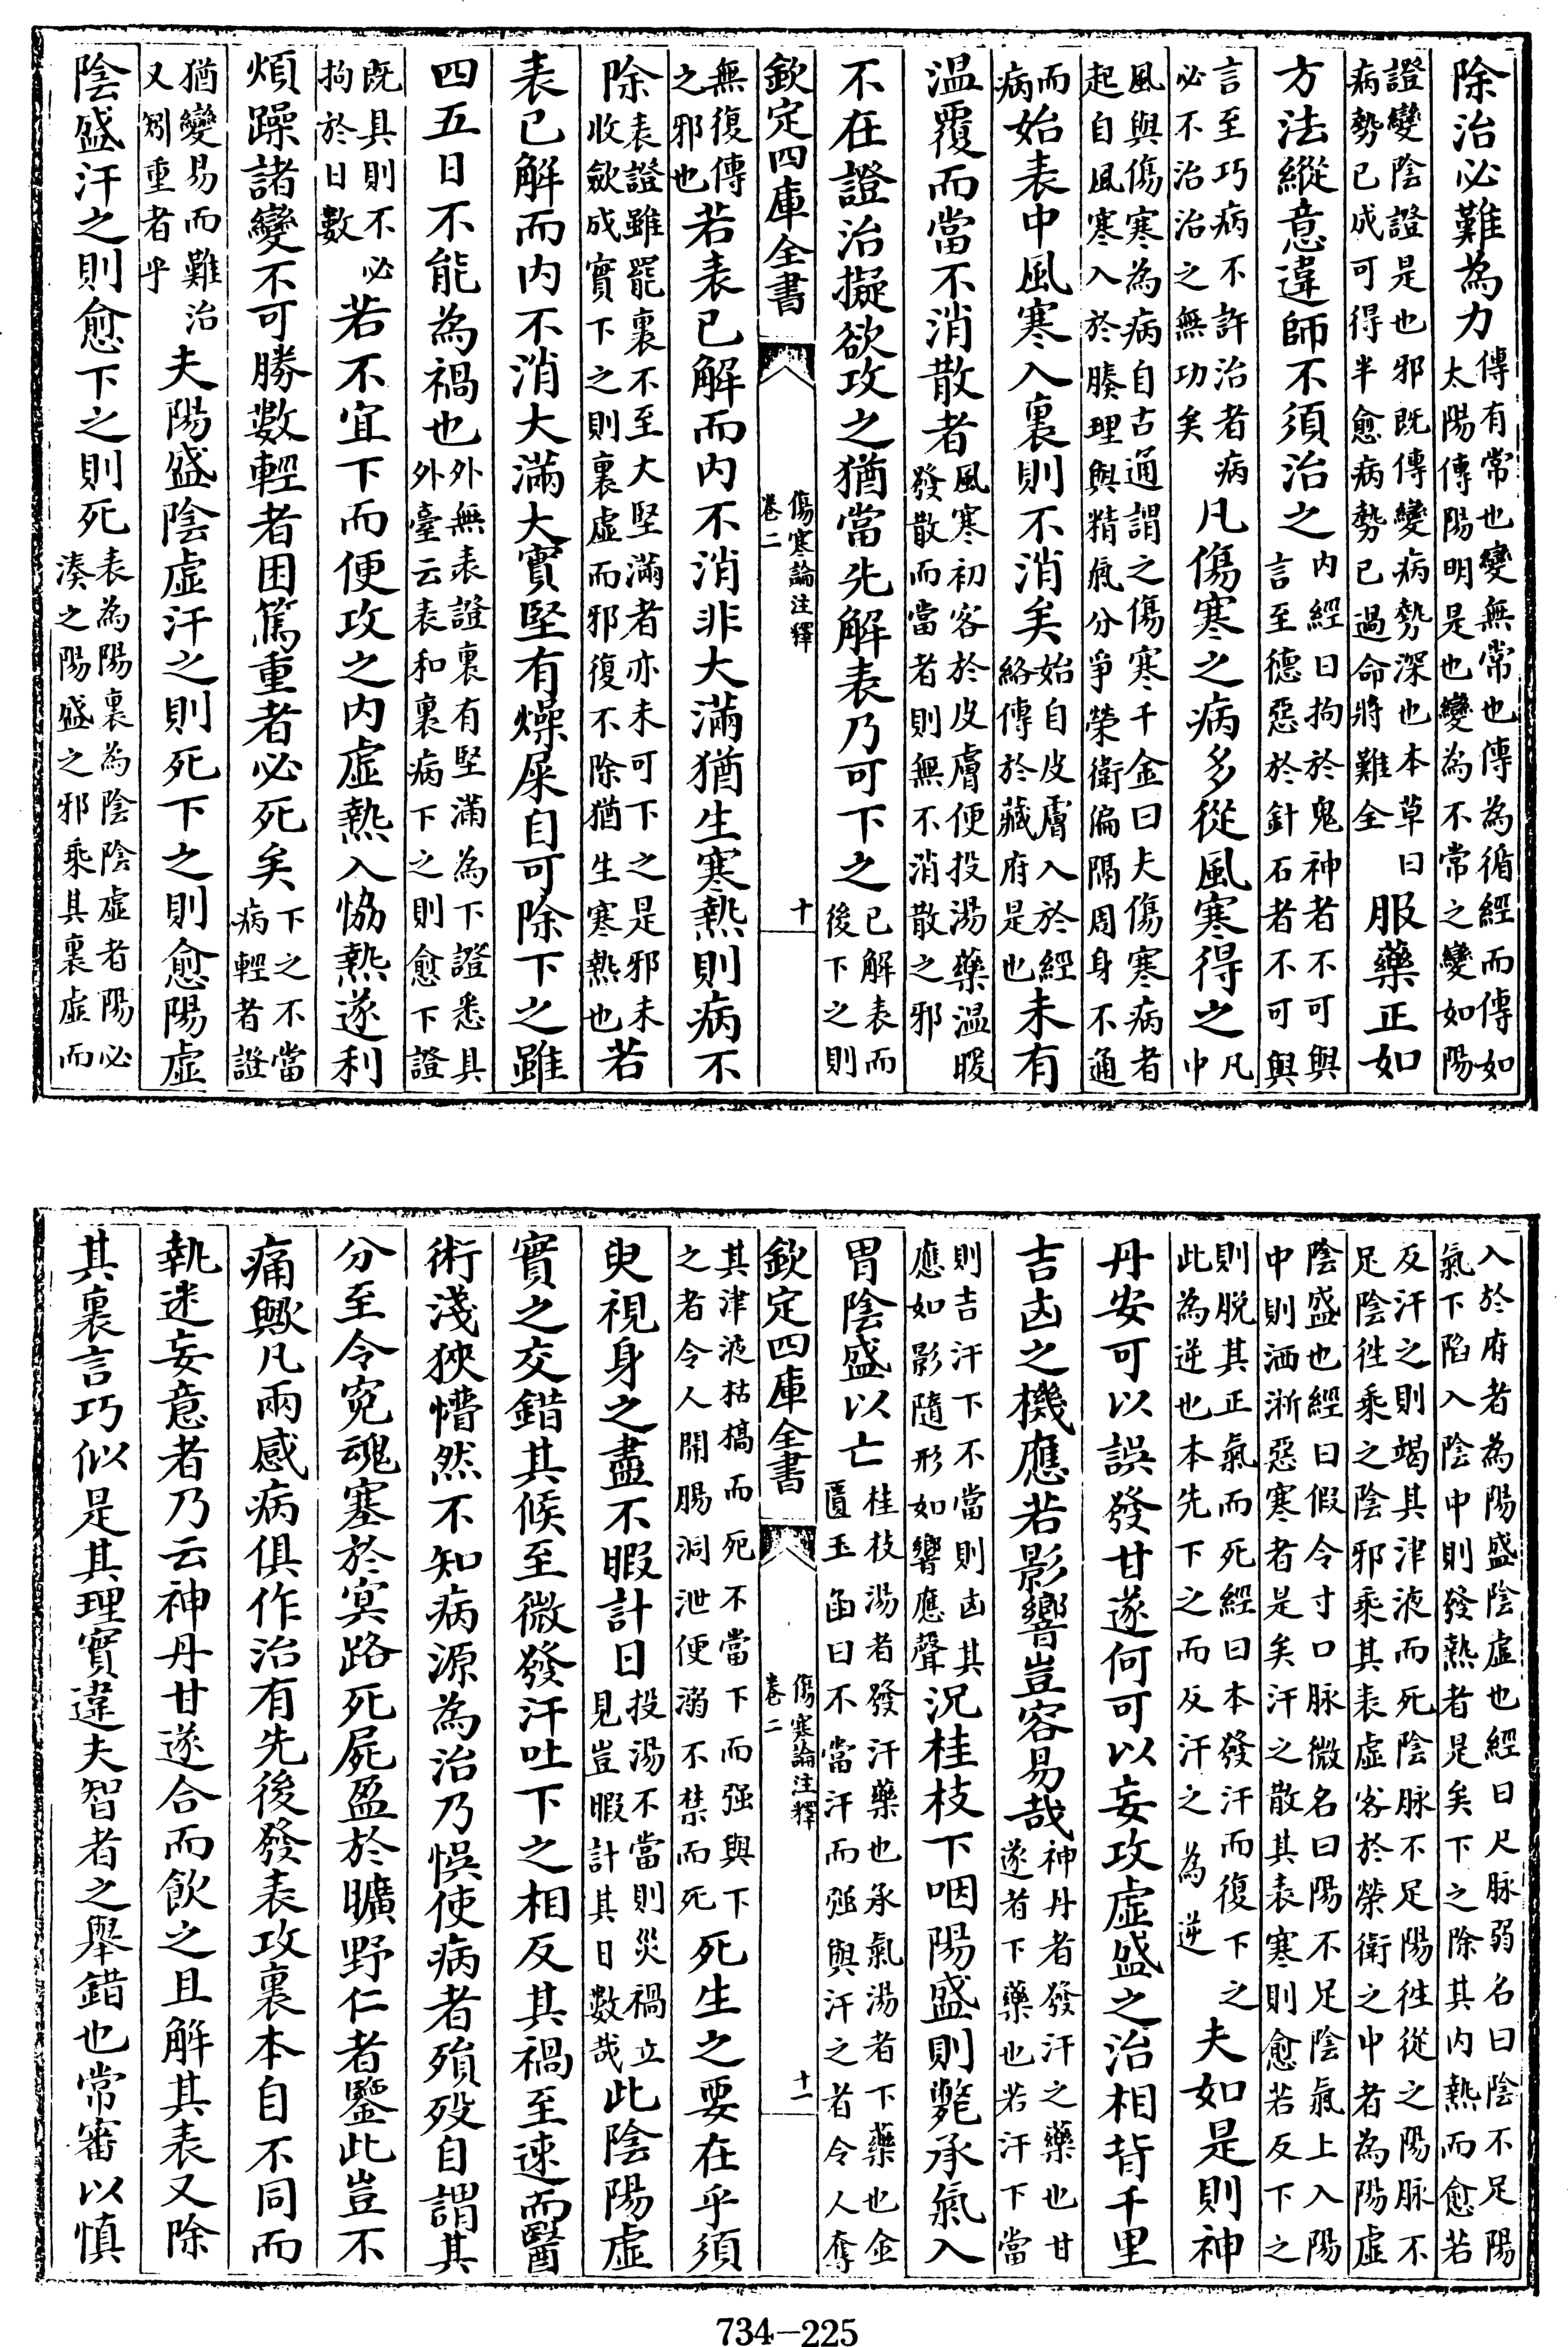 除治必難為力傳有常也變無常也傳為循經而傳如太陽傳陽明是也變為不常之變如陽
證變陰證是也邪既傳變病勢深也本草曰病勢已成可得半愈病勢已過命將難全服藥正如
方法縱意違師不須治之內經曰拘於鬼神者不可與言至德惡於針石者不可與
言至巧病不許治者病必不治治之無功矣凡傷寒之病多從風寒得之凡中
風與傷寒為病自古通謂之傷寒千金曰夫傷寒病者起自風寒入於腠理與精氣分爭榮衛偏隔周身不通
而病始表中風寒入裏則不消矣始自皮膚入於經絡傳於藏府是也未有
温覆而當不消散者風寒初客於皮膚便投湯藥温暖發散而當者則無不消散之邪
不在證治擬欲攻之猶當先解表乃可下之已解表而後下之則
欽定四庫全書
傷寒論注釋
卷二
十
無復傳之邪也若表已解而內不消非大滿猶生寒熱則病不
除表證雖罷裏不至大堅滿者亦未可下之是邪未收斂成實下之則裏虚而邪復不除猶生寒熱也若
表已解而内不消大滿大實堅有燥屎自可除下之雖
四五日不能為禍也外無表證裏有堅滿為下證悉具外臺云表和裏病下之則愈下證
既具則不必拘於日數若不宜下而便攻之内虛熱入恊熱遂利
煩躁諸變不可勝數輕者困篤重者必死矣下之不當病輕者證
猶變易而難治又矧重者乎夫陽盛陰虛汗之則死下之則愈陽虛
陰盛汗之則愈下之則死表為陽裏為陰陰虛者陽必湊之陽盛之邪乘其裏虛而
入於府者為陽盛陰虛也經曰尺脉弱名曰陰不足陽氣下陷入陰中則發熱者是矣下之除其内熱而愈若
反汗之則竭其津液而死陰脉不足陽徃從之陽脉不足陰徃乘之陰邪乘其表虛客於榮衛之中者為陽虛
陰盛也經曰假令寸口脉微名曰陽不足陰氣上入陽中則洒淅惡寒者是矣汗之散其表寒則愈若反下之
則脱其正氣而死經曰本發汗而復下之此為逆也本先下之而反汗之為逆夫如是則神
丹安可以誤發甘遂何可以妄攻虛盛之治相背千里
吉凶之機應若影響豈容易哉神丹者發汗之藥也甘遂者下藥也若汗下當
則吉汗下不當則凶其應如影隨形如響應聲況桂枝下咽陽盛則斃承氣入
胃陰盛以亡桂枝湯者發汗藥也承氣湯者下藥也金匱玉函曰不當汗而强與汗之者令人奪
欽定四庫全書
傷寒論注釋
卷二
十一
其津液枯槁而死不當下而强與下之者令人開腸洞泄便溺不禁而死死生之要在乎須
臾視身之盡不暇計日投湯不當則災禍立見豈暇計其日數哉此陰陽虛
實之交錯其候至微發汗吐下之相反其禍至速而醫
術淺狹懵然不知病源為治乃悮使病者殞殁自謂其
分至令寃魂塞於㝠路死屍盈於曠野仁者鑒此豈不
痛歟凡兩感病俱作治有先後發表攻裏本自不同而
執迷妄意者乃云神丹甘遂合而飲之且解其表又除
其裏言巧似是其理實違夫智者之舉錯也常審以慎
734—225